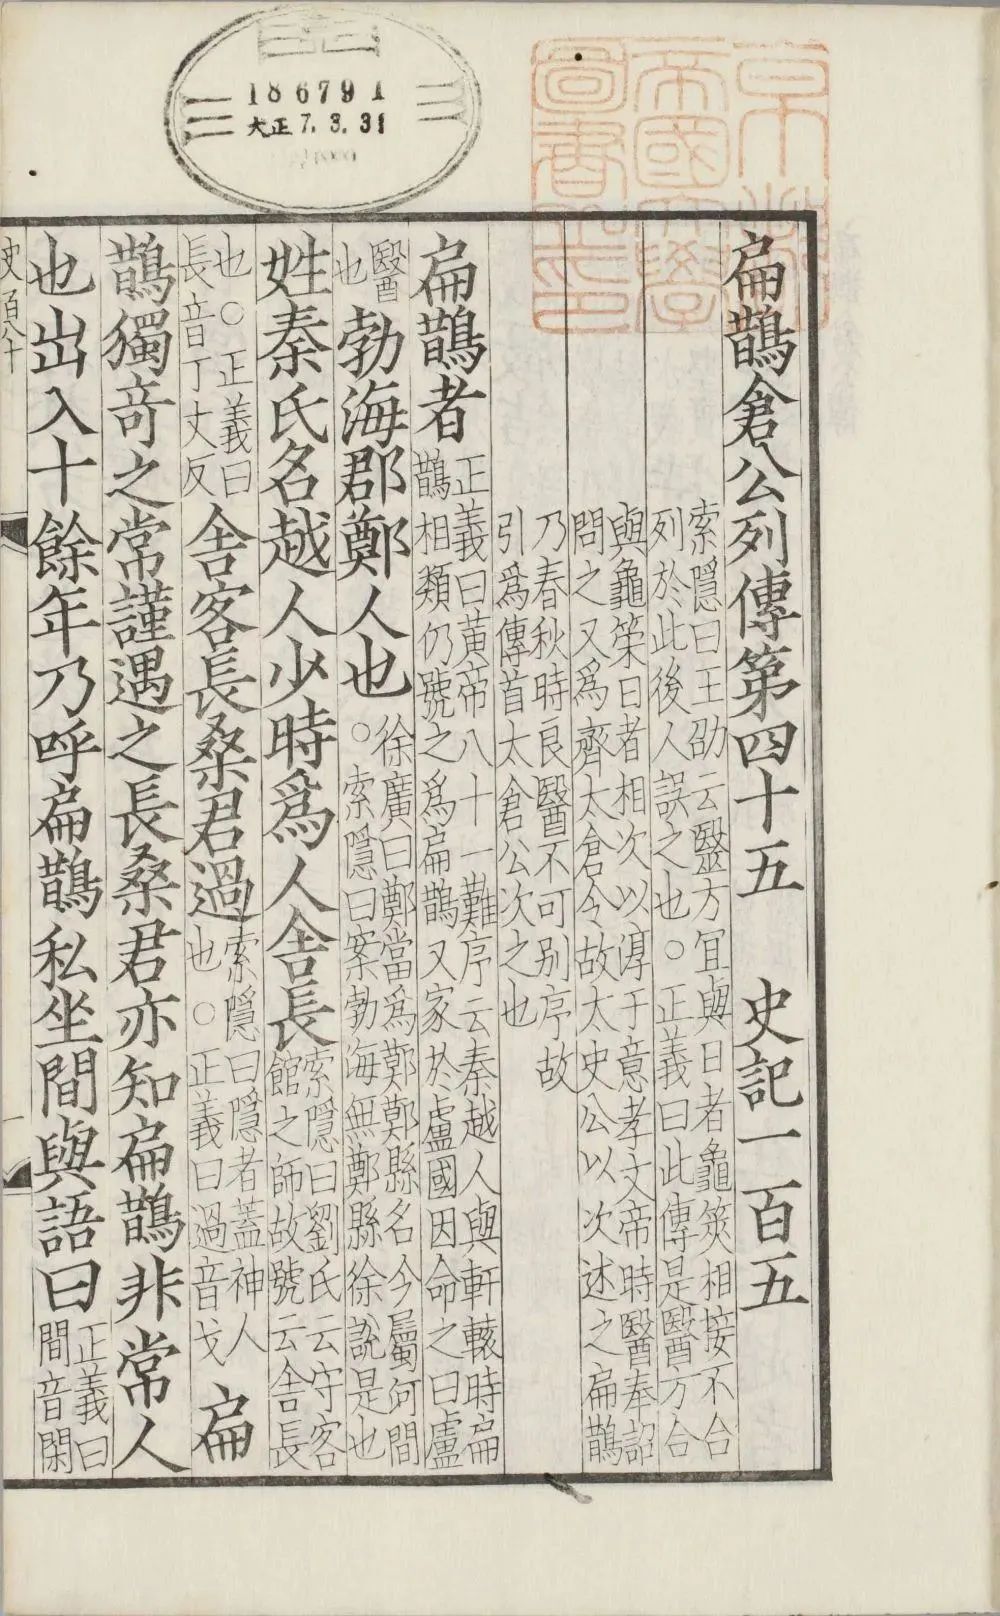 186791
大正7.3.31
京
帝國大學
圖書之印
扁鵲倉公列傳第四十五　史記一百五
索隱曰王劭云醫方宜與日者龜筴相接不合
列於此後人誤之也○正義曰此傳是醫方合
與龜筞日者相次以淳于意孝文帝時醫奉詔
問之又爲齊太倉令故太史公以次述之扁鵲
乃春秋時良醫不可别序故
引爲傳首太倉公次之也
扁鵲者
正義曰黃帝八十一難序云秦越人與軒轅時扁
鵲相類仍號之爲扁鵲又家於盧國因命之曰盧
醫
也
勃海郡鄭人也
徐廣曰鄭當爲鄚鄚縣名今屬河間
○索隱曰案勃海無鄭縣徐說是也
姓秦氏名越人少時爲人舍長
索隱曰劉氏云守客
館之師故號云舍長
也○正義曰
長音丁丈反
舍客長桑君過
索隱曰隱者蓋神人
也○正義曰過音戈
扁
鵲獨奇之常謹遇之長桑君亦知扁鵲非常人
也出入十餘年乃呼扁鵲私坐間與語曰
正義曰
間音閑
史百八十